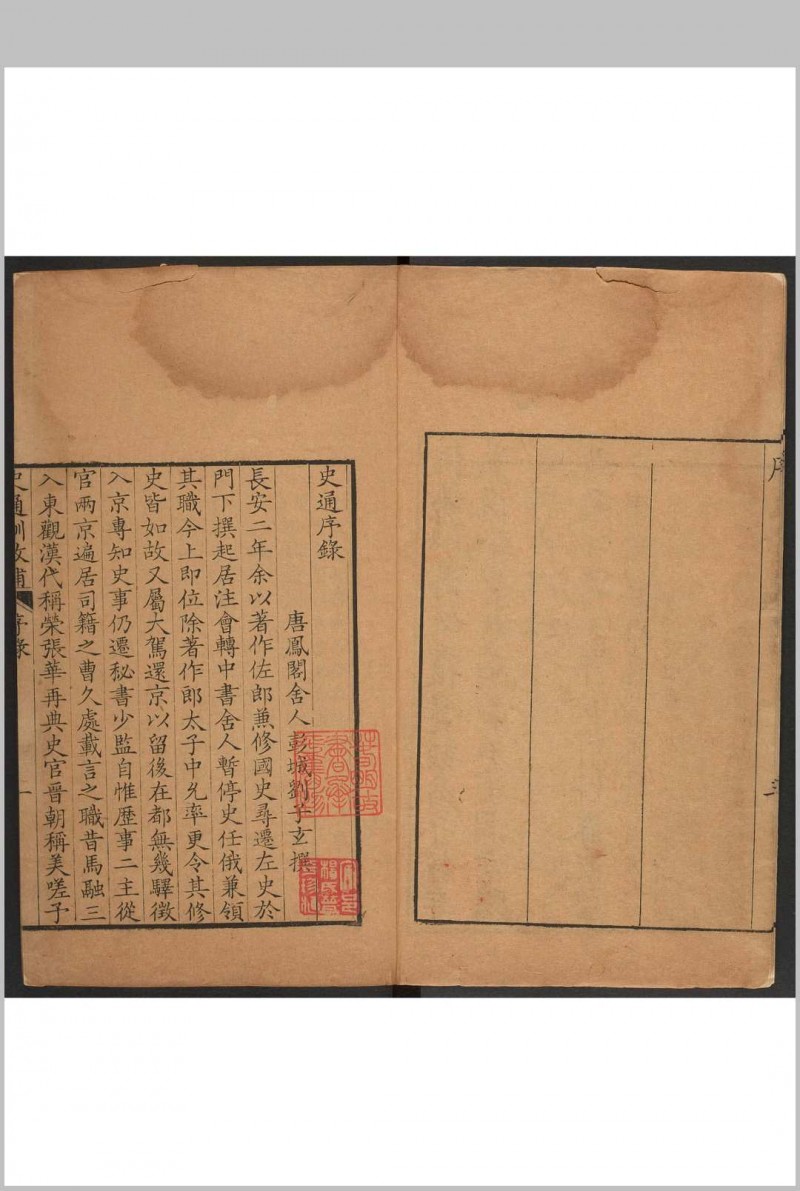 序
三
史通序錄
唐鳳閣舍人彭城劉子玄撰
長安二年余以著作佐郎兼修國史尋遷左史於
門下撰起居注會轉中書舍人暫停史任俄兼領
其職今上即位除著作郎太子中允率更令其修
史皆如故又屬大駕還京以留後在都無幾驛徵
入京專知史事仍遷秘書少監自惟歷事二主從
官兩京遍居司籍之曹久處載言之職昔馬融三
入東觀漢代稱榮張華再典史官晉朝稱美嗟予
史通訓故補 序錄 一